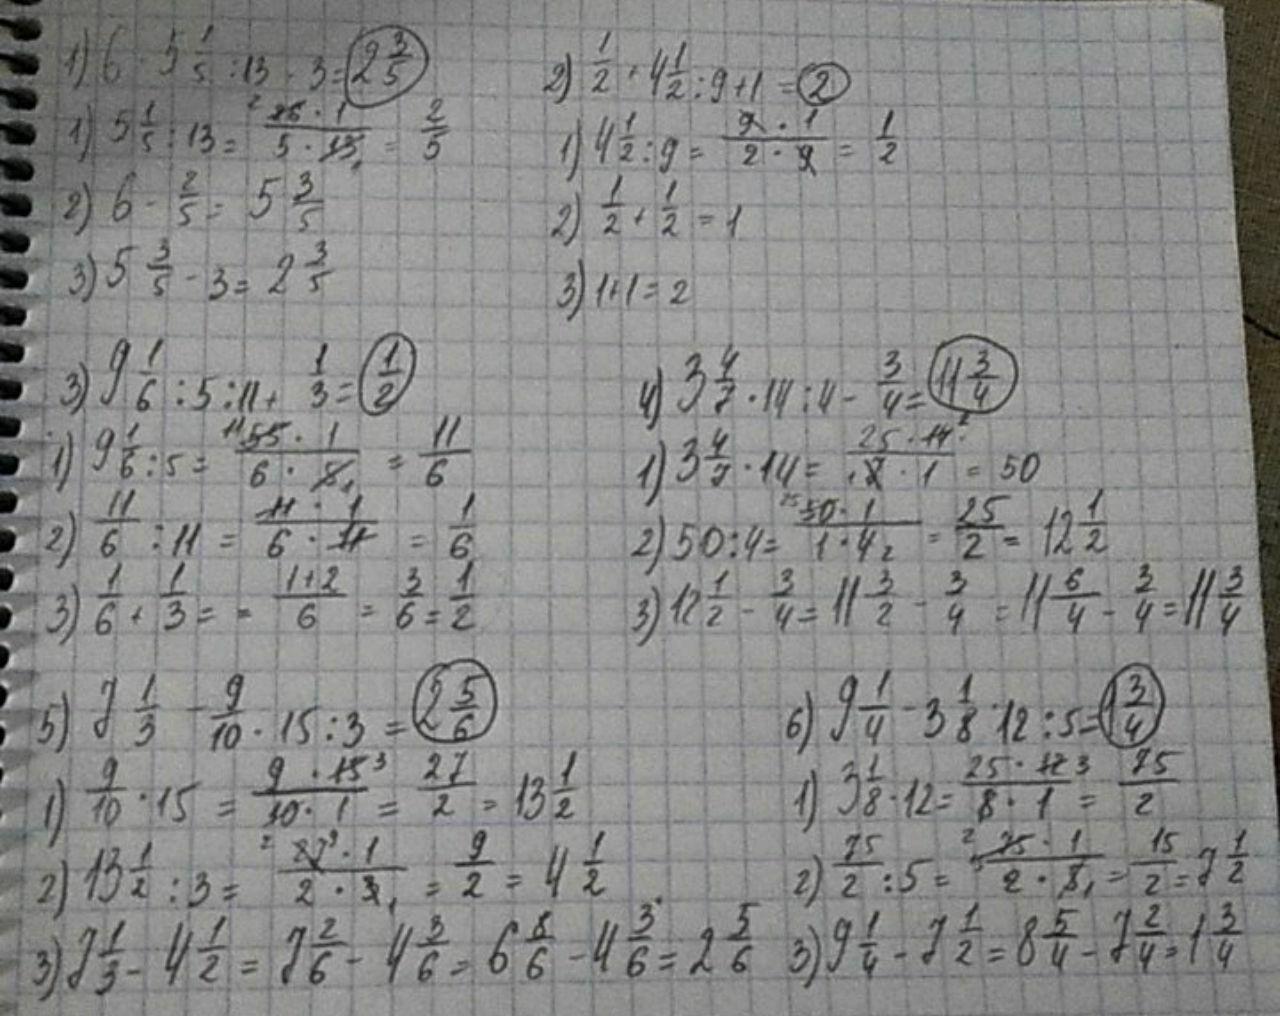 1) 6 - 5 1/5 : 13 - 3 = 2 3/5
1) 5 1/5 : 13 = 26 · 1 / 5 · 13 = 2/5
2) 6 - 2/5 = 5 3/5
3) 5 3/5 - 3 = 2 3/5
2) 1/2 + 4 1/2 : 9 + 1 = 2
1) 4 1/2 : 9 = 9 · 1 / 2 · 9 = 1/2
2) 1/2 + 1/2 = 1
3) 1+1 = 2
3) 9 1/6 : 5 : 11 + 1/3 = 1/2
1) 9 1/6 : 5 = 55 · 1 / 6 · 5 = 11/6
2) 11/6 : 11 = 11 · 1 / 6 · 11 = 1/6
3) 1/6 + 1/3 = = 1+2/6 = 3/6 = 1/2
4) 3 4/7 · 14 : 4 - 3/4 = 11 3/4
1) 3 4/7 · 14 = 25 · 14 / 7 · 1 = 50
2) 50 : 4 = 50 · 1 / 1 · 4 = 25/2 = 12 1/2
3) 12 1/2 - 3/4 = 11 3/2 - 3/4 = 11 6/4 - 3/4 = 11 3/4
5) 7 1/3 - 9/10 · 15 : 3 = 2 5/6
1) 9/10 · 15 = 9 · 15 / 10 · 1 = 27/2 = 13 1/2
2) 13 1/2 : 3 = 27 · 1 / 2 · 3 = 9/2 = 4 1/2
3) 7 1/3 - 4 1/2 = 7 2/6 - 4 3/6 = 6 8/6 - 4 3/6 = 2 5/6
6) 9 1/4 - 3 1/8 · 12 : 5 = 1 3/4
1) 3 1/8 · 12 = 25 · 12 / 8 · 1 = 75/2
2) 75/2 : 5 = 75 · 1 / 2 · 5 = 15/2 = 7 1/2
3) 9 1/4 - 7 1/2 = 8 5/4 - 7 2/4 = 1 3/4